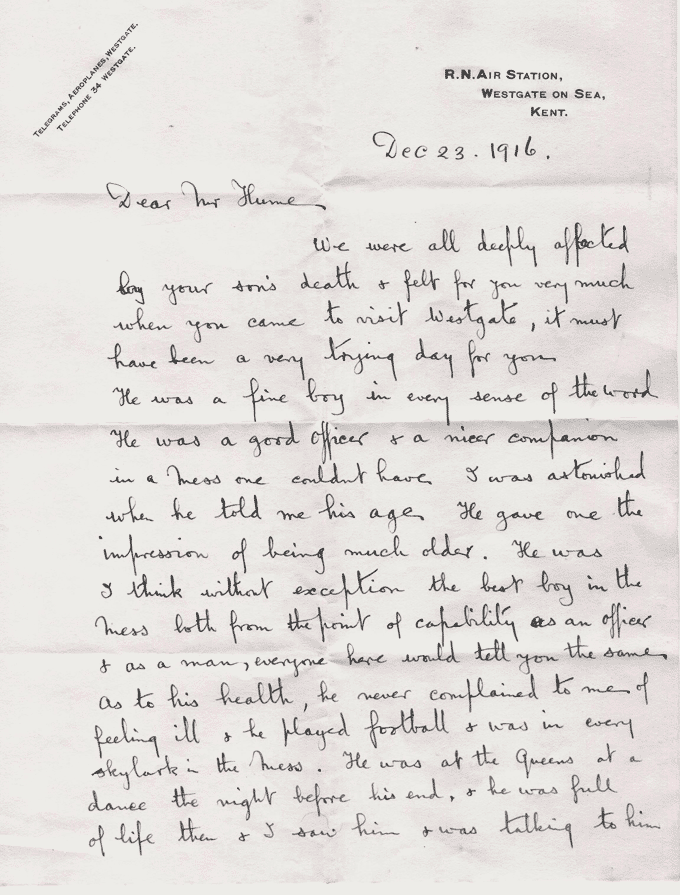 Telegrams, Aeroplanes, Westgate.
Telephone 34 Westgate.
R.N. Air Station,
Westgate on Sea,
Kent.
Dec 23. 1916.
Dear Mr Hume
We were all deeply affected
by your son's death & felt for you very much
when you came to visit Westgate, it must
have been a very trying day for you
He was a fine boy in every sense of the word
He was a good officer & a nicer companion
in a Mess one couldnt have I was astonished
when he told me his age He gave one the
impression of being much older. He was
I think without exception the best boy in the
Mess both from the point of capability as an officer
& as a man, everyone here would tell you the same
As to his health, he never complained to me of
feeling ill & he played football & was in every
skylark in the Mess. He was at the Queens at a
dance the night before his end, & he was full
of life then & I saw him & was talking to him